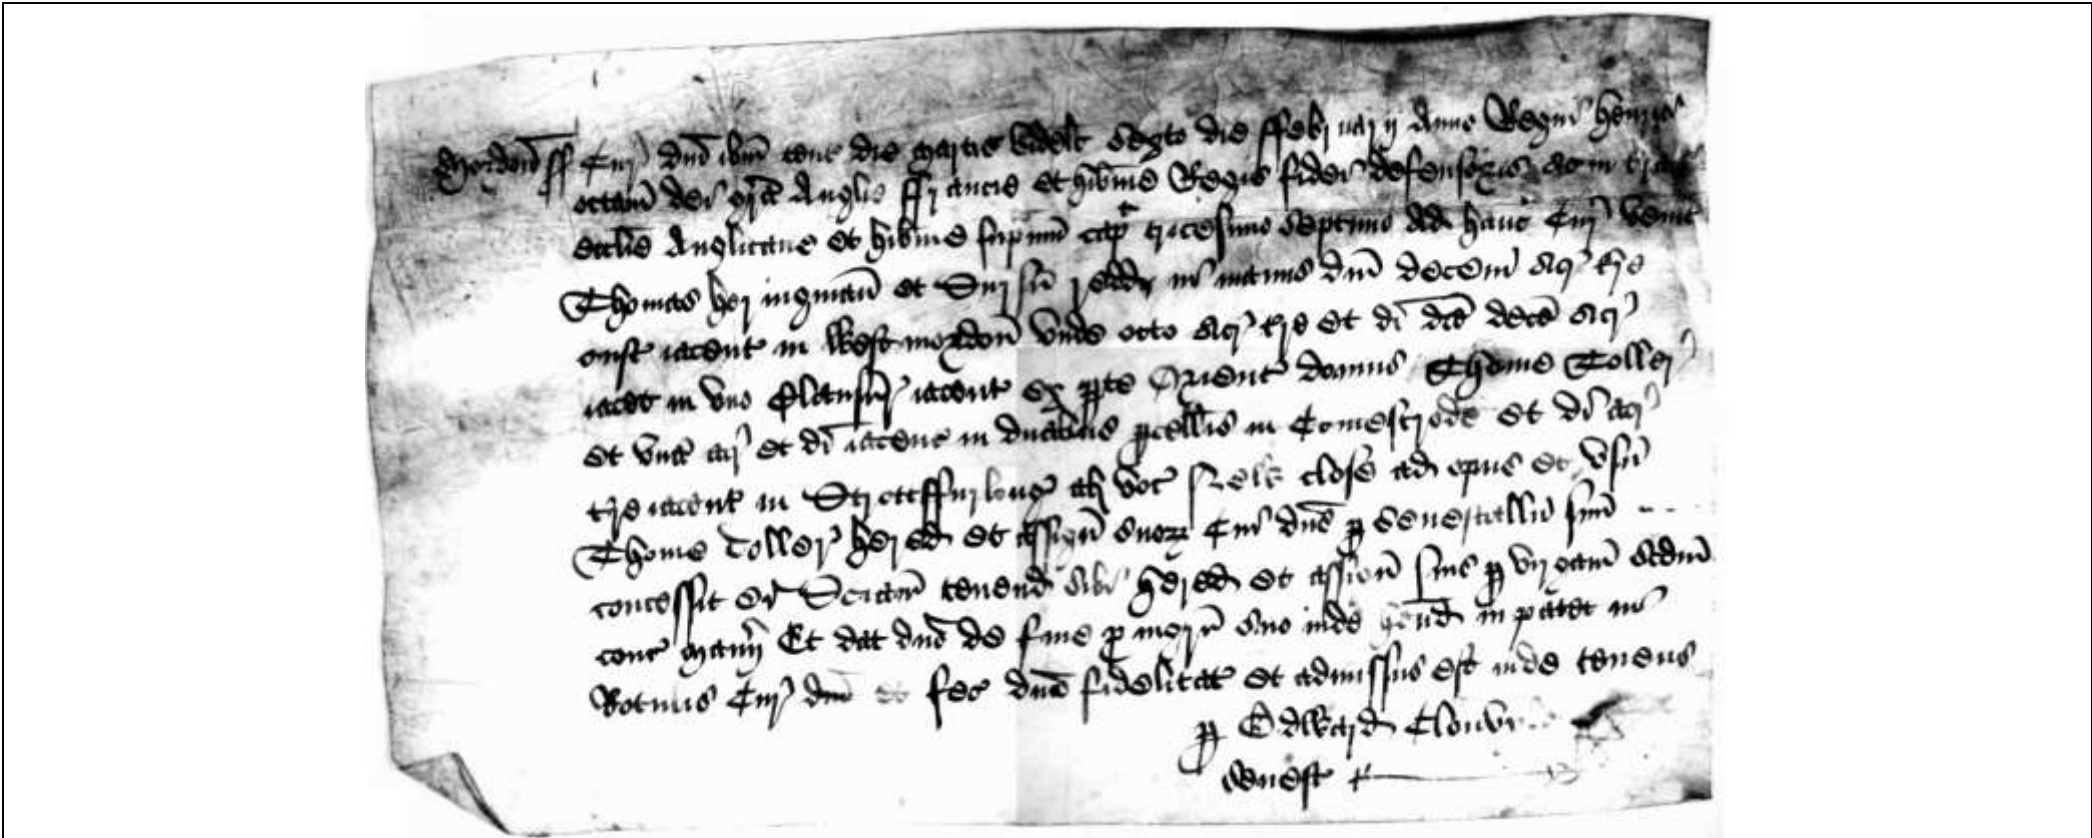 Mordon ss Cur dni ibm tent die martis videlt sexto die ffebruarij Anno Regni henrici
octavi dei gra Anglie ffrancie et hibnie Regis fidei defensoris ac in
ecclie Anglicane et hibnie supmi cap tricesimo septimo Ad hanc Cur venit
Thomas heringman et Sursu redd in manus dni decem acr tre
cust iacent in West mordon unde octo acr tre et di dce dece acr
iacet in uno Clausur iacent ex pte Orient domus Thome Toller
et una acr et di iacent in duabus pcellis in Comestrode et di acr
tre iacent in Strettffurlong als voc close ad opus et usu
Thome Toller hered et assign suor Cui dns p Senescallu suu
concessit ei Seisam tenend sibi hered et assign suis p virgam scdm
cons maner Et dat dno de fine p ingr suo inde hend in patet in
Rotulis Cur dni et fec dno fidelitat et admissus est inde tenens
p Edward
senesc